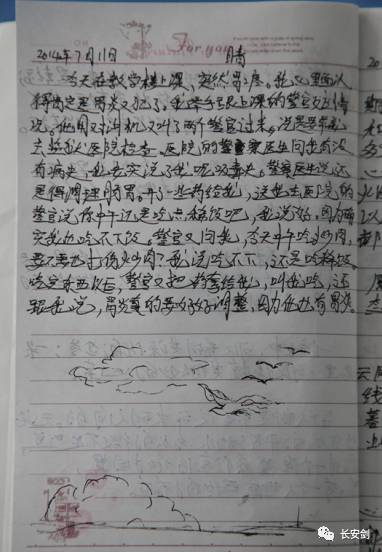 2014年7月11日 For you 晴
今天在教学楼上课，突然胃疼。我心里面认
得肯定是胃炎又犯了。我举手跟上课的警官说了情
况。他用对讲机又叫了两个警官过来，说是带我
去监狱医院检查。医院的警察医生问我有没
有病史，我老实说了我吸毒史。警察医生说还
是得调理肠胃。开了一些药给我，送我去医院的
警官说你中午还是吃点稀饭吧，我说好。因为确
实我也吃不下饭。警官又问我，今天中午吃炒肉，
要不要也打份炒肉？我说吃不下，还是吃稀饭。
吃完东西以后，警官又把药拿给我，叫我吃，还
跟我说，胃炎真的要好好调整，因为他也有胃炎。
长安剑